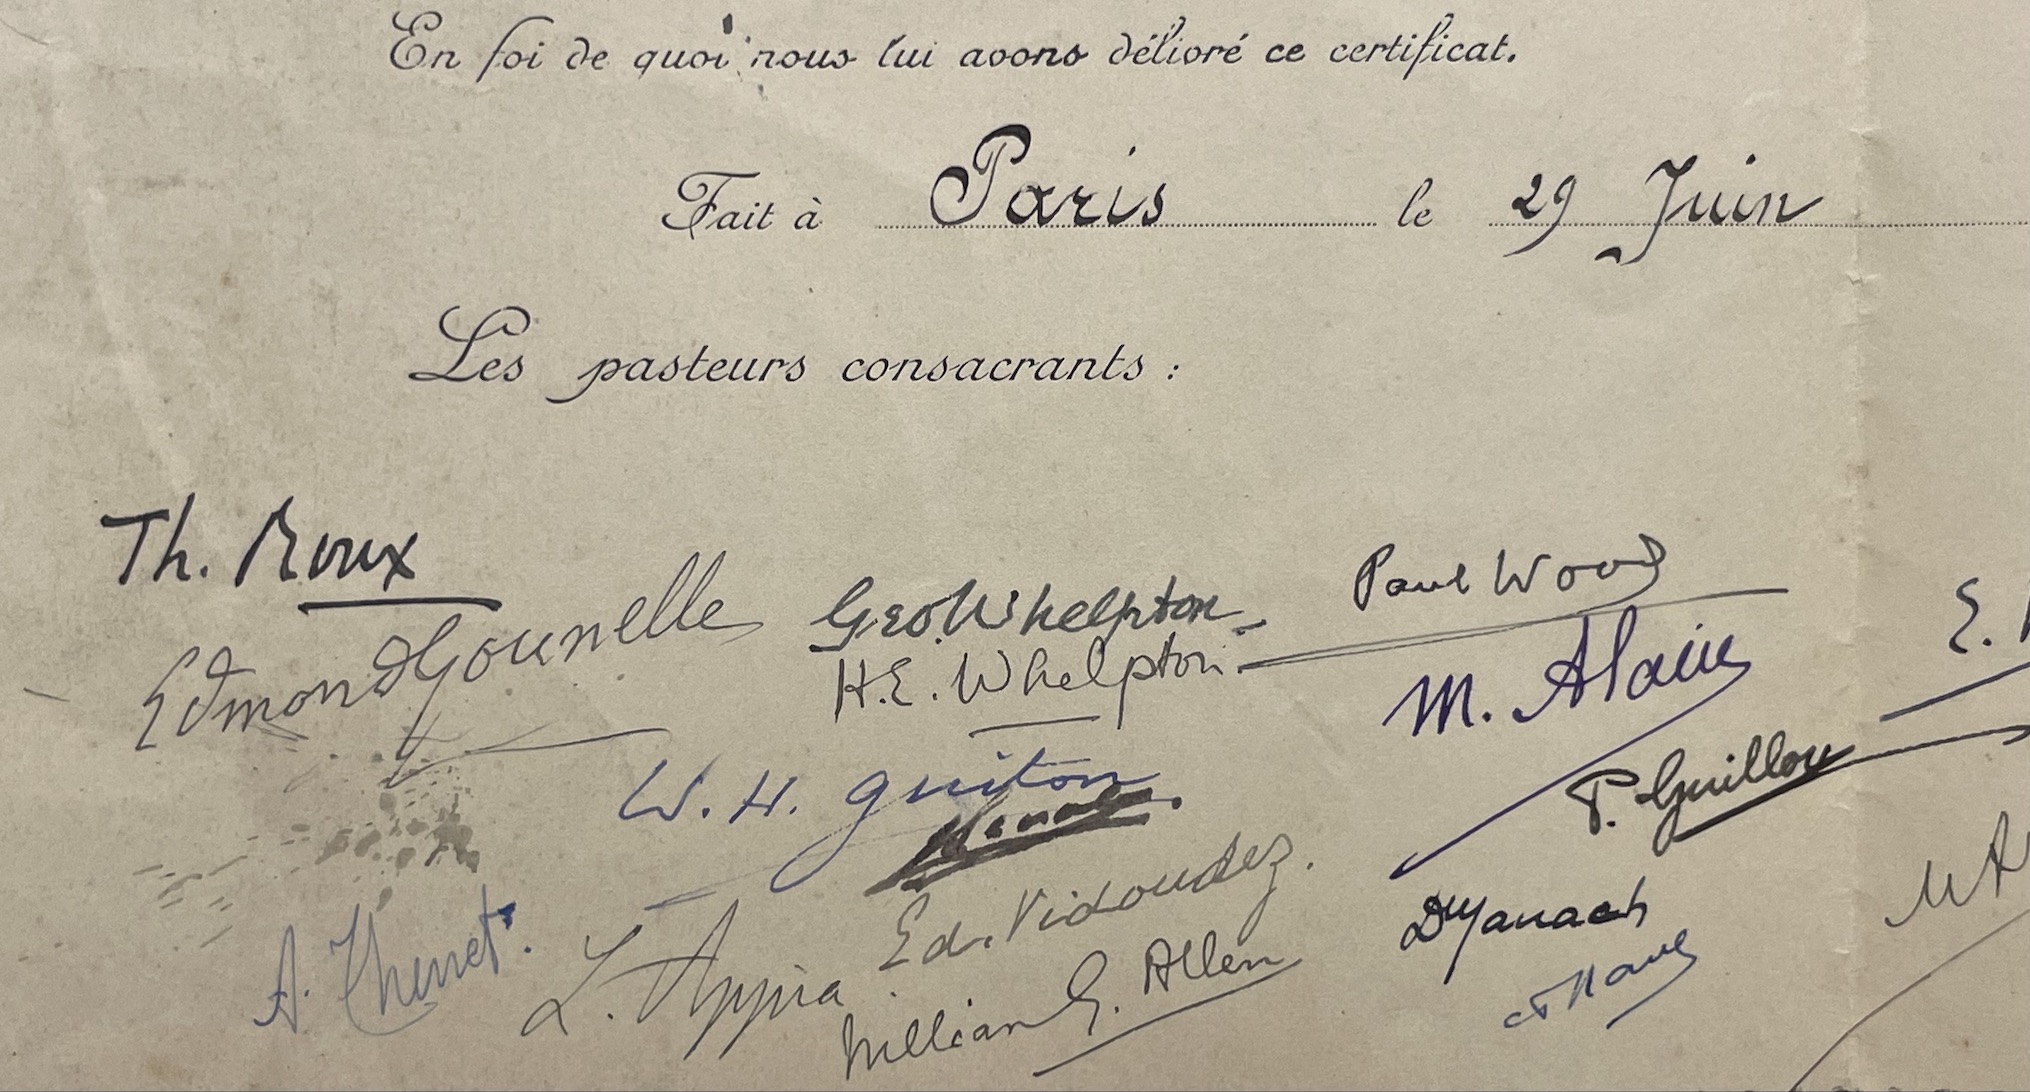 En foi de quoi nous lui avons délivré ce certificat.
Fait à Paris le 29 Juin
Les pasteurs consacrants :
Th. Roux
Edmond Gounelle
Geo. Whelpton
H.E. Whelpton
Paul Wood
M. Alain
E.
W. H. Guiton
P. Guillou
Ed. Vidoudez.
A. Thenet
L. Appia
William G. Allen